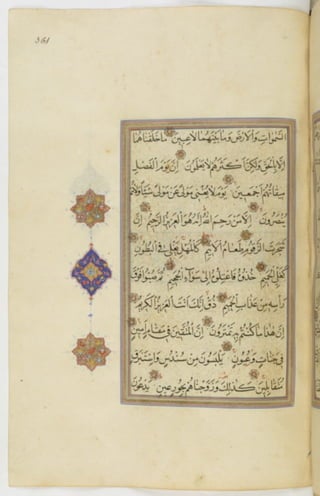 السَّمٰوَاتِ وَالْاَرْضَ وَمَا بَيْنَهُمَا لَاعِبِينَ مَا خَلَقْنَاهُمَا
اِلَّا بِالْحَقِّ وَلٰكِنَّ اَكْثَرَهُمْ لَا يَعْلَمُونَ اِنَّ يَوْمَ الْفَصْلِ
مِيقَاتُهُمْ اَجْمَعِينَ يَوْمَ لَا يُغْنِى مَوْلًى عَنْ مَوْلًى شَيْئًا وَلَا هُمْ
يُنْصَرُونَ اِلَّا مَنْ رَحِمَ اللهُ اِنَّهُ هُوَ الْعَزِيزُ الرَّحِيمُ اِنَّ
شَجَرَتَ الزَّقُّومِ طَعَامُ الْاَثِيمِ كَالْمُهْلِ يَغْلِى فِى الْبُطُونِ
كَغَلْىِ الْحَمِيمِ خُذُوهُ فَاعْتِلُوهُ اِلٰى سَوَاءِ الْجَحِيمِ ثُمَّ صُبُّوا فَوْقَ
رَاْسِهِ مِنْ عَذَابِ الْحَمِيمِ ذُقْ اِنَّكَ اَنْتَ الْعَزِيزُ الْكَرِيمُ
اِنَّ هٰذَا مَا كُنْتُمْ بِهِ تَمْتَرُونَ اِنَّ الْمُتَّقِينَ فِى مَقَامٍ اَمِينٍ
فِى جَنَّاتٍ وَعُيُونٍ يَلْبَسُونَ مِنْ سُنْدُسٍ وَاِسْتَبْرَقٍ
مُتَقَابِلِينَ كَذٰلِكَ وَزَوَّجْنَاهُمْ بِحُورٍ عِينٍ يَدْعُونَ